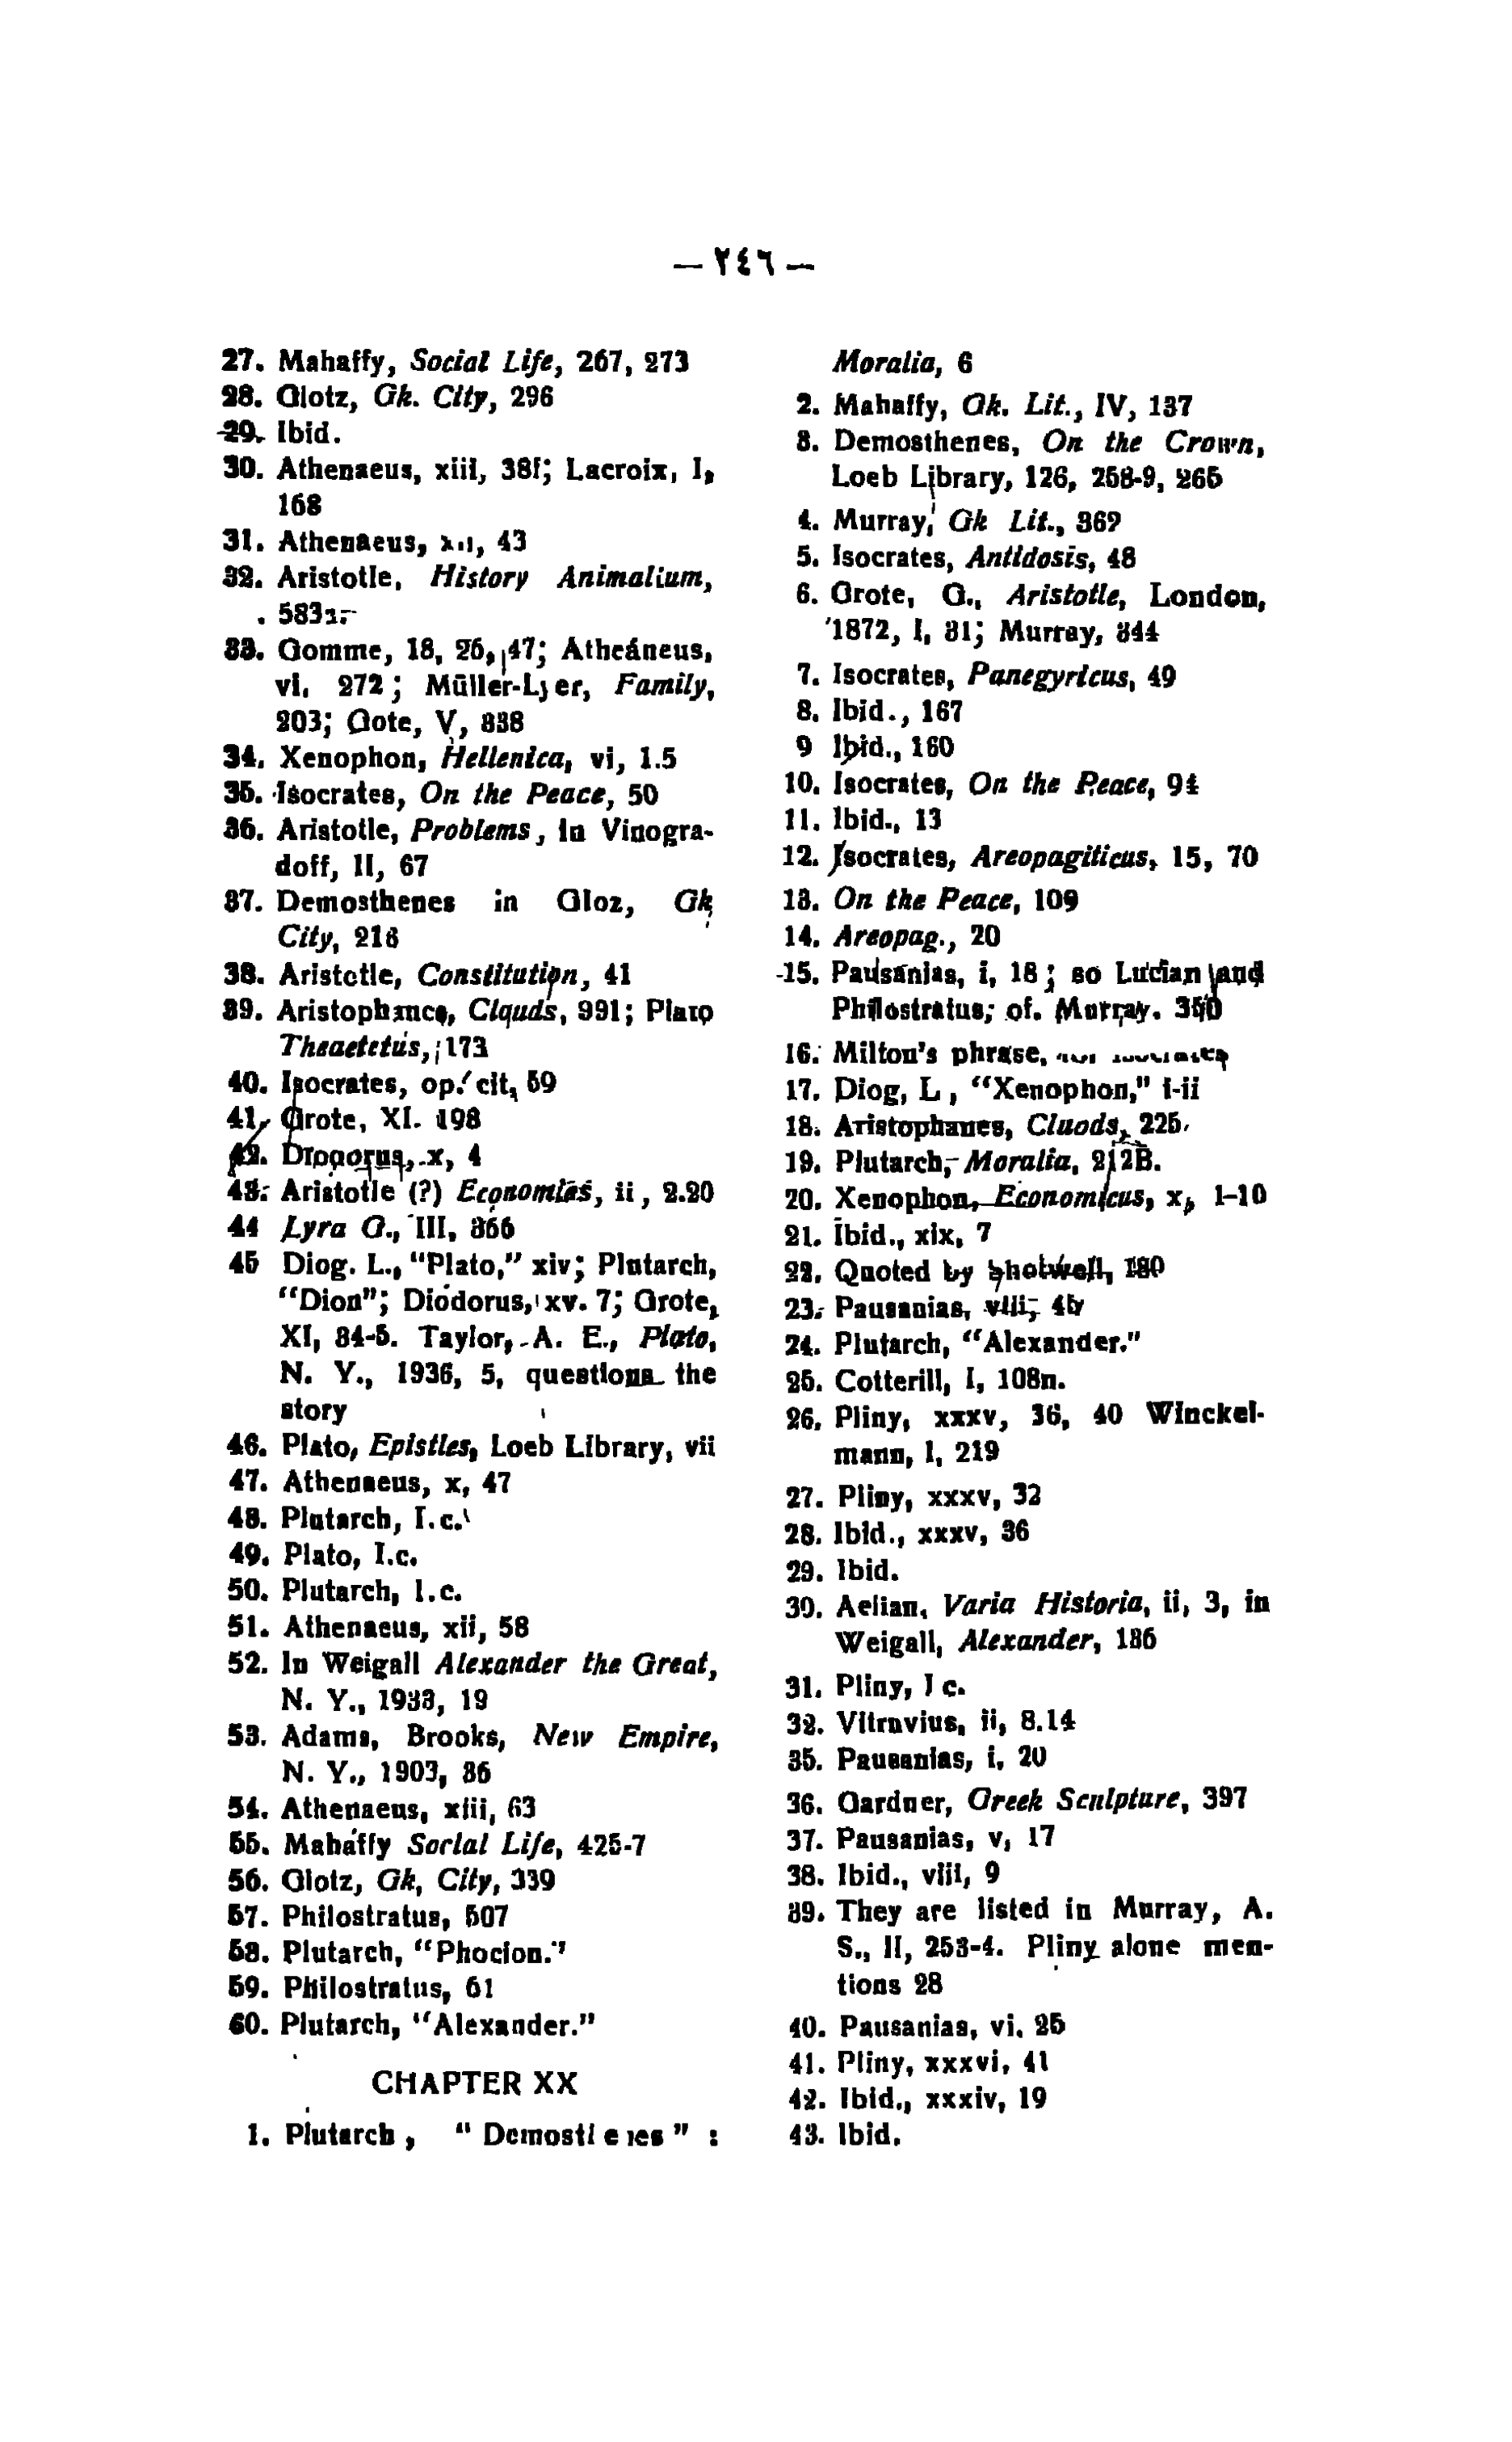 — ٢٤٦ —
27. Mahaffy, Social Life, 267, 273
28. Glotz, Gk. City, 296
29. Ibid.
30. Athenaeus, xiii, 38f; Lacroix, I,
168
31. Athenaeus, 43
32. Aristotle, History Animalium,
583a
33. Gomme, 18, 26, 47; Atheáneus,
vi, 272; Müller-Lyer, Family,
203; Gote, V, 338
34. Xenophon, Hellenica, vi, 1.5
35. Isocrates, On the Peace, 50
36. Aristotle, Problems, in Vinogra-
doff, II, 67
37. Demosthenes in Gloz, Gk
City, 216
38. Aristotle, Constitution, 41
39. Aristophances, Clquds, 991; Plato
Theaetetus, 173
40. Isocrates, op. cit, 59
41. Grote, XI. 198
42. x, 4
43. Aristotle (?) Economics, ii, 2.20
44 Lyra G., III, 366
45 Diog. L., "Plato," xiv; Plutarch,
"Dion"; Diodorus, xv. 7; Grote,
XI, 34-5. Taylor, A. E., Plato,
N. Y., 1936, 5, questions the
story
46. Plato, Epistles, Loeb Library, vii
47. Athenaeus, x, 47
48. Plutarch, I.c.
49. Plato, I.c.
50. Plutarch, l.c.
51. Athenaeus, xii, 58
52. In Weigall Alexander the Great,
N. Y., 1933, 19
53. Adams, Brooks, New Empire,
N. Y., 1903, 36
54. Athenaeus, xiii, 63
55. Mahaffy Sorlal Life, 425-7
56. Glotz, Gk, City, 339
57. Philostratus, 507
58. Plutarch, "Phocion."
59. Philostratus, 61
60. Plutarch, "Alexander."
CHAPTER XX
1. Plutarch, "Demosthenes":
Moralia, 6
2. Mahaffy, Gk. Lit., IV, 137
3. Demosthenes, On the Crown,
Loeb Library, 126, 258-9, 265
4. Murray, Gk Lit., 362
5. Isocrates, Antidosis, 48
6. Grote, G., Aristotle, London,
1872, I, 31; Murray, 344
7. Isocrates, Panegyricus, 49
8. Ibid., 167
9 Ibid., 160
10. Isocrates, On the Peace, 94
11. Ibid., 13
12. Isocrates, Areopagiticus, 15, 70
13. On the Peace, 109
14. Areopag., 20
15. Pausanias, i, 18; so Lucian and
Philostratus; of. Murray. 350
16. Milton's phrase,
17. Diog, L, "Xenophon," i-ii
18. Aristophanes, Cluods, 225
19. Plutarch, Moralia, 212B.
20. Xenophon, Economicus, x, 1-10
21. Ibid., xix, 7
22. Quoted by Shotwell, 180
23. Pausanias, viii,
24. Plutarch, "Alexander."
25. Cotterill, I, 108n.
26. Pliny, xxxv, 36, 40 Winckel-
mann, I, 219
27. Pliny, xxxv, 32
28. Ibid., xxxv, 36
29. Ibid.
30. Aelian, Varia Historia, ii, 3, in
Weigall, Alexander, 186
31. Pliny, l c.
32. Vitruvius, ii, 8.14
35. Pausanias, i, 20
36. Gardner, Greek Sculpture, 397
37. Pausanias, v, 17
38. Ibid., viii, 9
39. They are listed in Murray, A.
S., II, 253-4. Pliny alone men-
tions 28
40. Pausanias, vi, 25
41. Pliny, xxxvi, 41
42. Ibid., xxxiv, 19
43. Ibid.